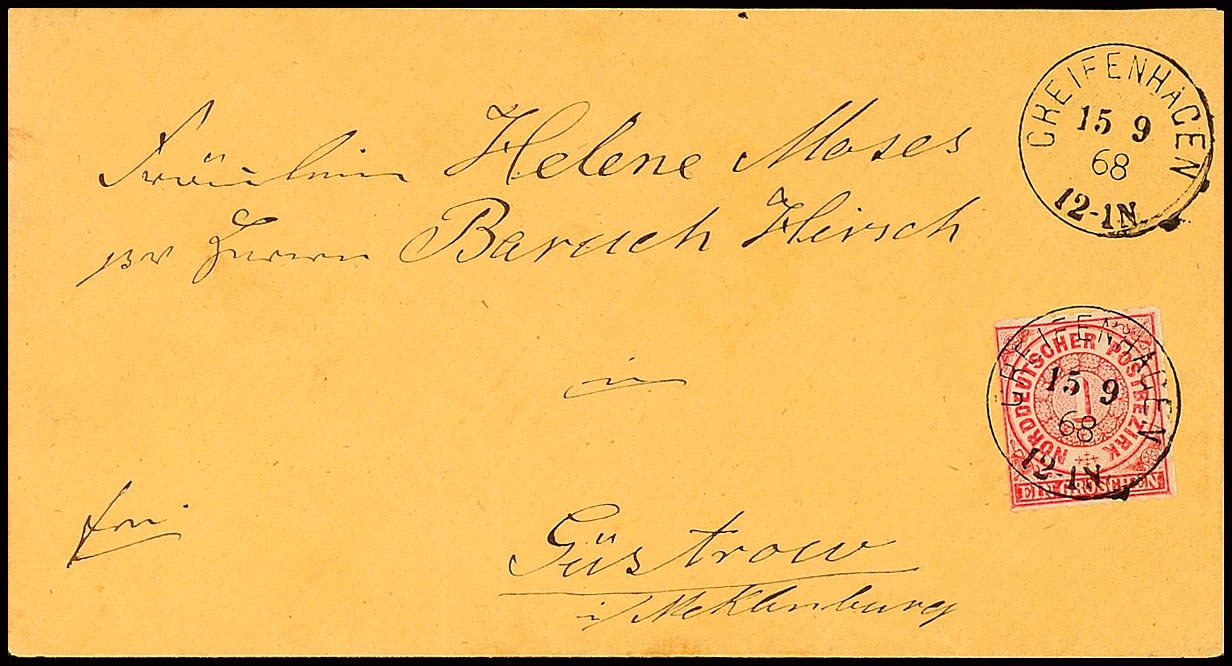 Fräulein Helene Moses
pr Herrn Baruch Hirsch
in
Güstrow
i/Meklenburg
frei
GREIFENHAGEN
15 9
68
12-1N
NORDDEUTSCHER POSTBEZIRK
1
EIN GROSCHEN
GREIFENHAGEN
15 9
68
12-1N